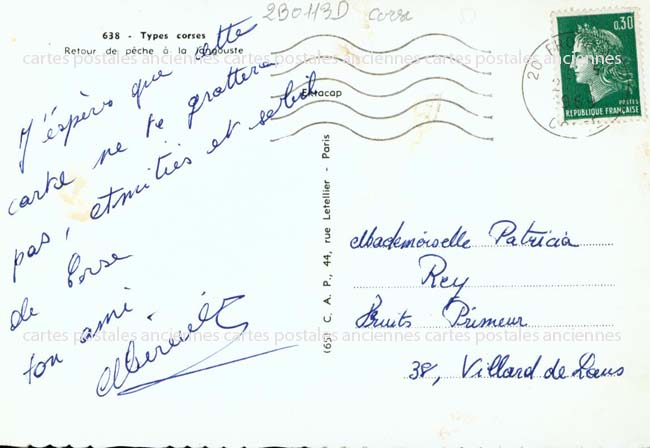 2B0113D corse
638 - Types corses
Retour de pêche à la langouste
Ektacap
J'éspère que cette
carte ne te grattera
pas, etmitiés et soleil
de Corse
ton ami
(65) C. A. P., 44, rue Letellier - Paris
Mademoiselle Patricia
Rey
Fruits Primeur
38, Villard de Lans
0,30
POSTES
REPUBLIQUE FRANÇAISE
20
cartes postales anciennes cartes postales anciennes cartes postales anciennes
cartes postales anciennes cartes postales anciennes cartes postales anciennes